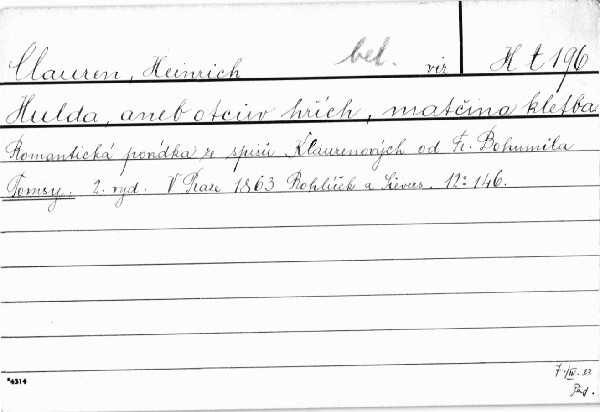 Clauren, Heinrich bel. viz H t 196
Hulda, aneb otcův hřích, matčina kletba.
Romantická povídka z spisů Klaurenových od Fr. Bohumila
Tomsy. 2. vyd. V Praze 1863 Rohlíček a Sievers. 12º 146.
*4314
7./IV. 33